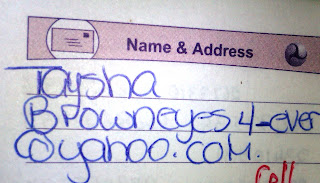 Name & Address
Taysha
Browneyes4-ever
@yahoo.com.
Cell